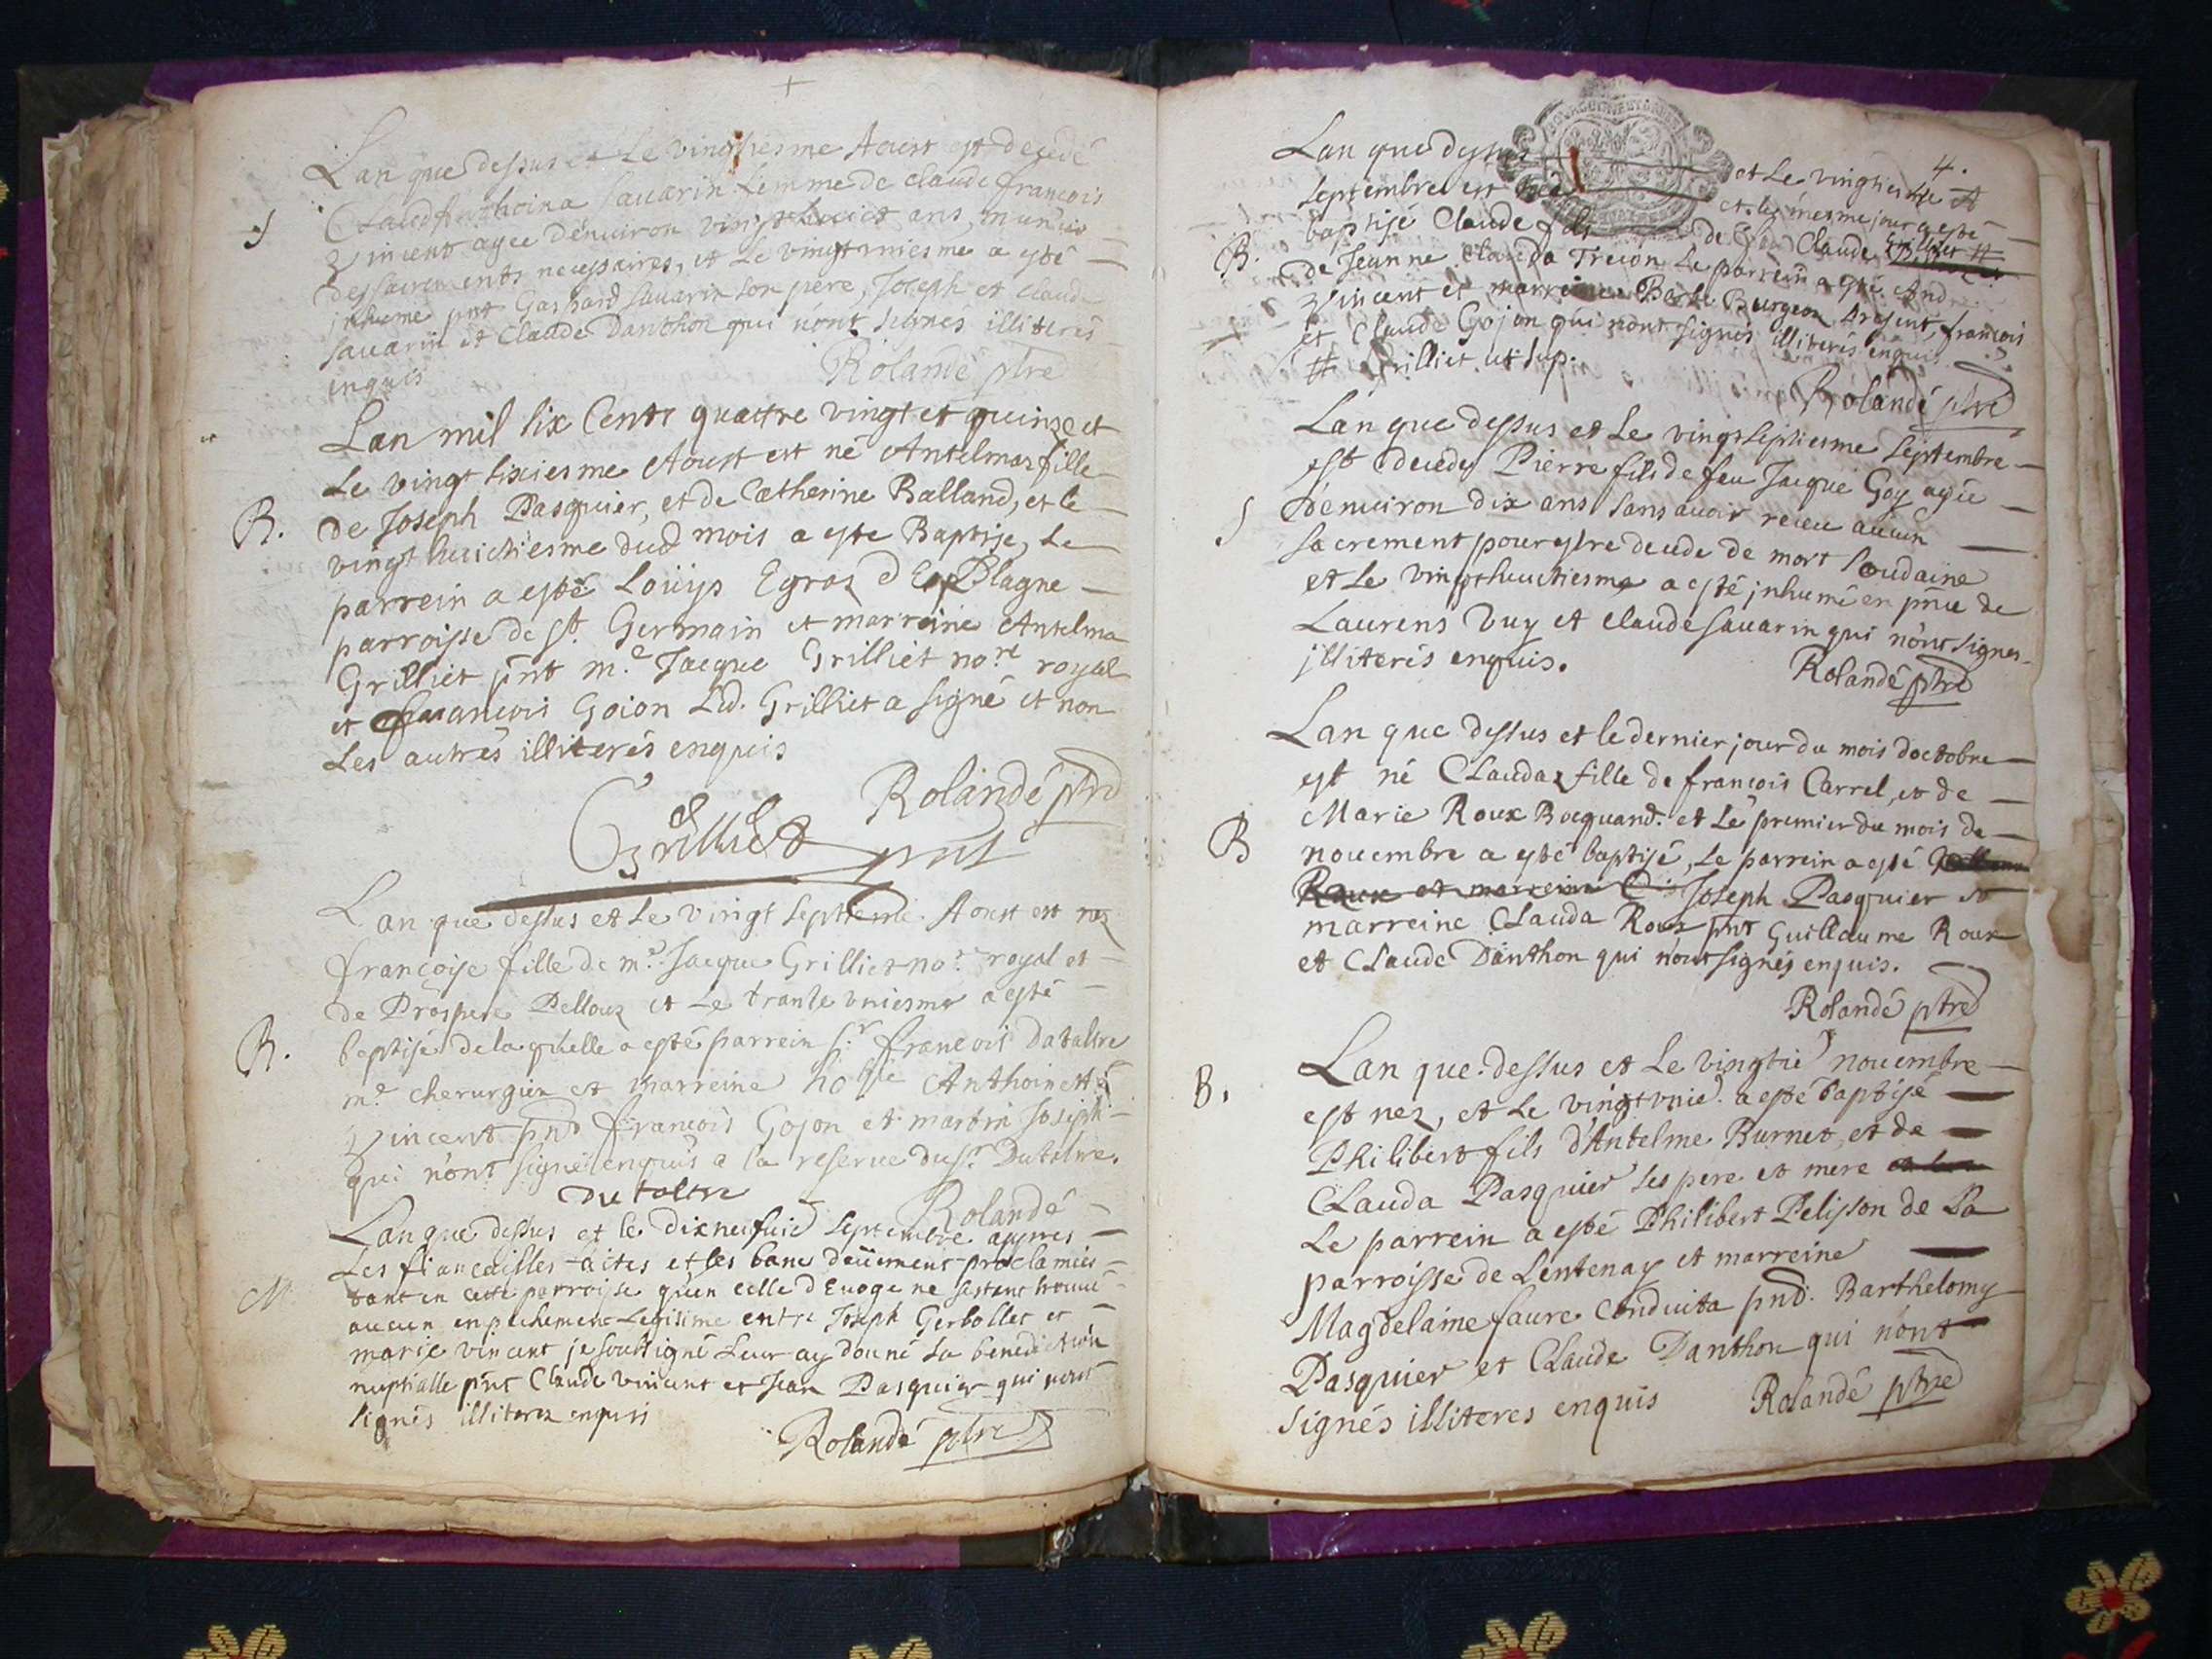 Lan que dessus et Le vingtiesme Aoust est decedé
Claud Anthoina Sauarin femme de claude francois
S
Vincent agee denuiron vingt huict ans, munie
des sacrements necessaires, et Le vingt uniesme a esté
inhumé pnt Gaspard Sauarin son pere, Joseph et claude
Sauarin et Claude Danthon qui nont signés illiterés
enquis
Rolandé ptre
Lan mil six Cents quattre vingt et quinze et
Le vingt sixiesme Aoust est né Antelmaz fille
de Joseph Pasquier, et de Catherine Balland, et le
B.
vingt huictiesme dud mois a esté Baptisé, Le
parrein a esté Loüys Egraz d Esplagne
parroisse de St. Germain et marreine Antelma
Grilliet pnt me. Jacque Grilliet nore. royal
et francois Goion Led. Grilliet a signé et non
Les autres illiterés enquis
Rolandé ptre
Grilliet pnt
Lan que dessus et Le vingt septieme Aoust est nez
francoise fille de me. Jacque Grilliet nore. royal et
de Prospere Pellouz et Le trante uniesme a esté
B.
baptisé de laquelle a esté parrein sr. francois Dataltre
me. cherurgien et marreine hoble Anthoinette
Vincent pnt francois Gojon et martin Joseph
qui n'ont signé enquis a la reserue du sr. Dutaltre.
Dutaltre
Rolandé
Lan que dessus et le dixneufuie septembre appres
Les fiancailles faites et les bans deüement proclamés
M
tant en cette parroisse qu'en celle d'Euoge ne sestant trouué
aucun enpechement Legitime entre Joseph Gerbollet et
marie vincent je soubsigné Leur ay donné La benediction
nuptialle pnt Claude vincent et Jean Pasquier qui nont
signés illiterez enquis
Rolandé ptre
4.
Lan que dessus et Le vingtiesme
septembre est né et le mesme jour a esté
baptisé Claude fils de Claude Grilliet #
B.
de Jeanne Clauda Trecon Le parrein a esté And
Vincent et marreine Berte Burgeon Argent, francois
et Claude Gojon qui n'ont signés illiterés enquis
# Grilliet ut sup.
Rolandé ptre
Lan que dessus et Le vingt septiesme septembre
est decedé Pierre fils de feu Jacque Goy agée
S
denuiron dix ans sans auoir receu aucun
sacrement pour estre decede de mort soudaine
et Le vingt huictiesme a esté inhumé en pnce de
Laurens Vuy et claude sauarin qui n'ont signes
illiterés enquis.
Rolandé ptre
Lan que dessus et le dernier jour du mois doctobre
est né Claudaz fille de francois Carrel, et de
Marie Roux Bocquand. et Le premier du mois de
B
nouembre a esté baptisé, Le parrein a esté
Roux et marreine C Joseph Pasquier et
marreine Clauda Roux pnt Guillaume Roux
et Claude Danthon qui nont signés enquis.
Rolandé ptre
Lan que dessus et Le vingtie nouembre
B.
est nez, et Le vingt unie. a esté baptisé
Philibert fils d'Antelme Burnet, et de
Clauda Pasquier ses pere et mere
Le parrein a esté Philibert Pelisson de La
parroisse de Lentenay et marreine
Magdelaine faure conduita pnd. Barthelomy
Pasquier et Claude Danthon qui n'ont
signés illiteres enquis
Rolandé ptre